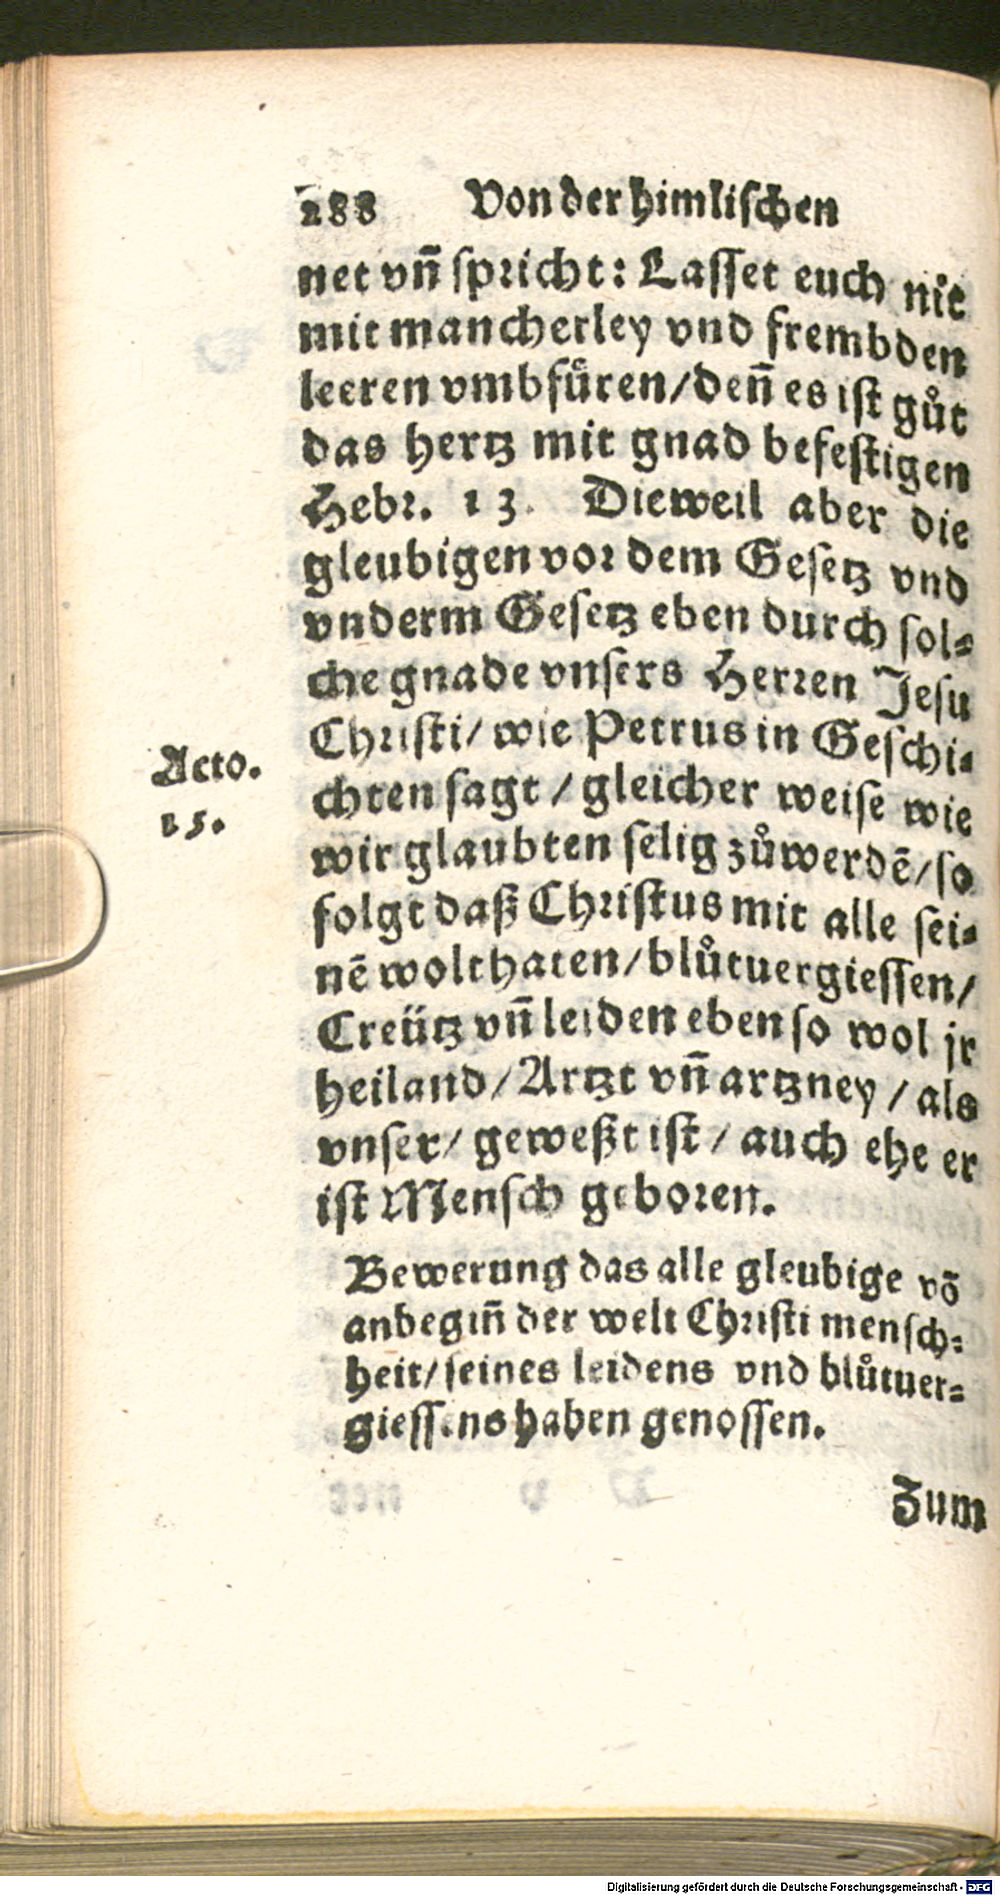 288 Von der himlischen
net vñ spricht: Lasset euch nit
mit mancherley vnd frembden
leeren vmbfüren/denñ es ist gůt
das hertz mit gnad befestigen
Hebr. 13. Dieweil aber die
gleubigen vor dem Gesetz vnd
vnderm Gesetz eben durch sol=
che gnade vnsers Herren Jesu
Christi/ wie Petrus in Geschi=
Acto.
15.
chten sagt / gleicher weise wie
wir glaubten selig zůwerdē/so
folgt daß Christus mit alle sei=
nē wolthaten/blůtuergiessen/
Creütz vñ leiden eben so wol jr
heiland/Artzt vñ artzney / als
vnser/ geweßt ist / auch ehe er
ist Mensch geboren.
Bewerung das alle gleubige võ
anbegiñ der welt Christi mensch=
heit/seines leidens vnd blůtuer=
giessens haben genossen.
Zum
Digitalisierung gefördert durch die Deutsche Forschungsgemeinschaft - DFG